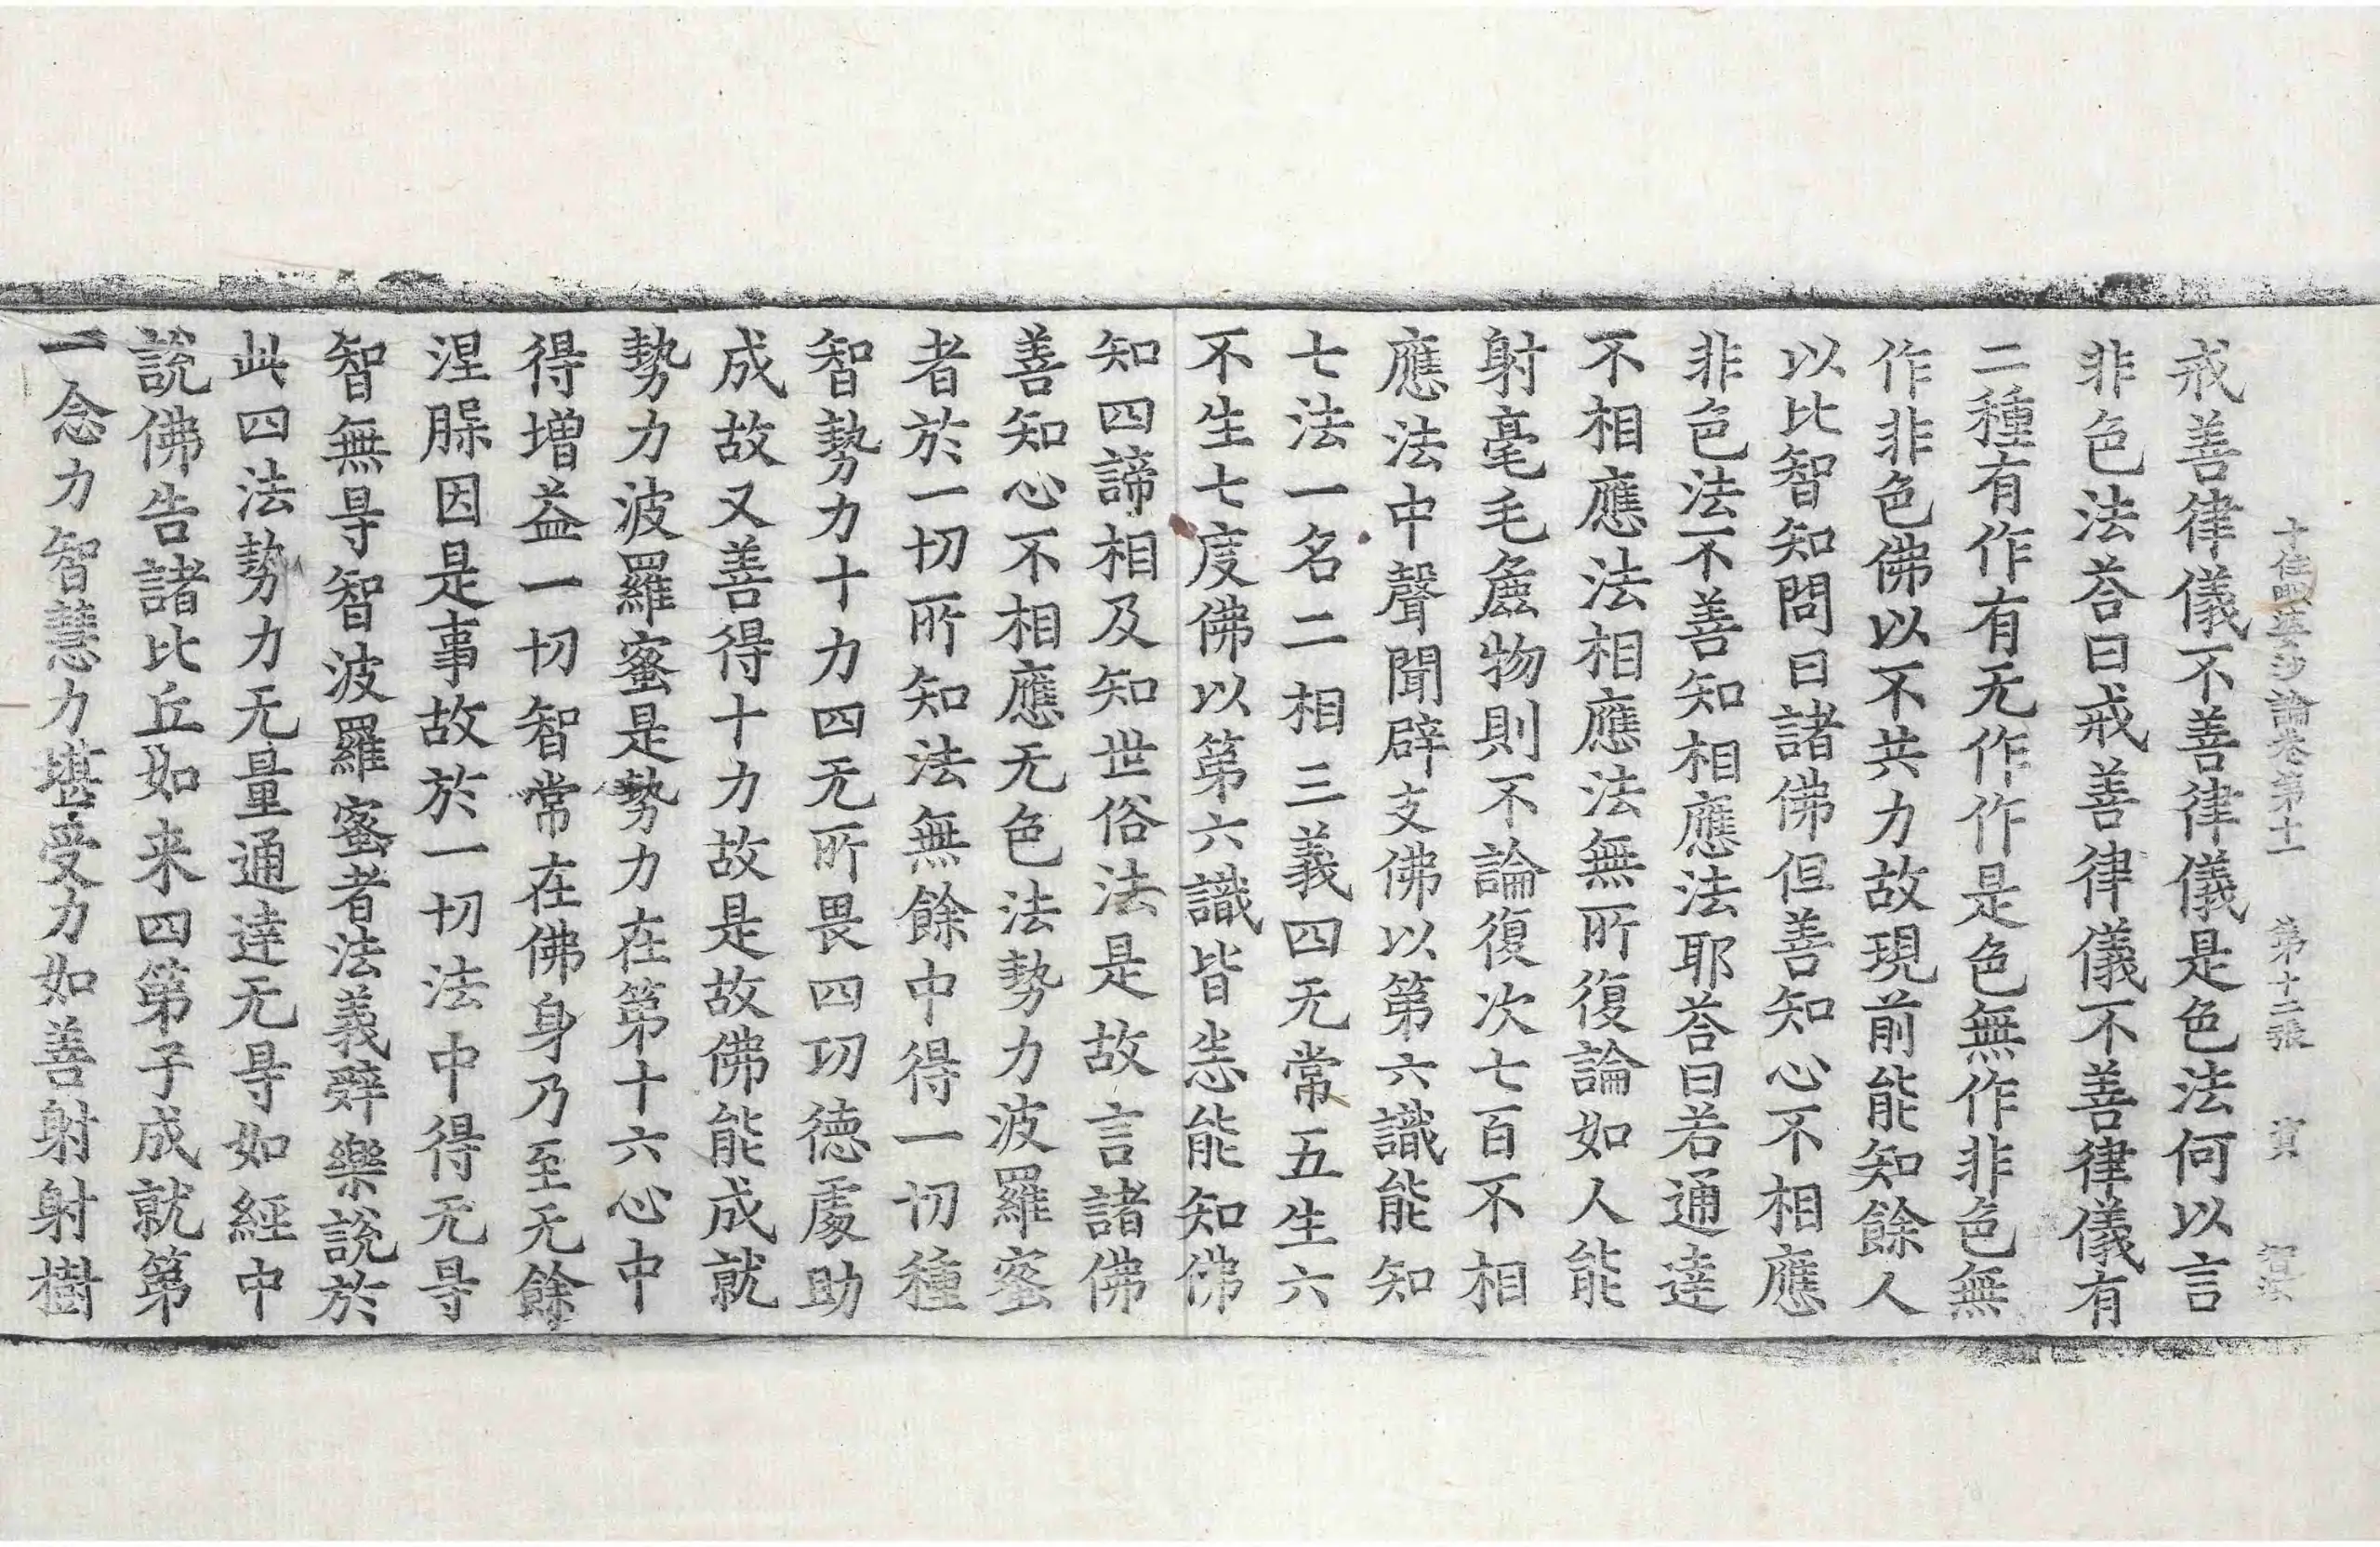 十住毗婆沙論卷第十一　第十二張　寅
戒善律儀不善律儀是色法何以言
非色法荅曰戒善律儀不善律儀有
二種有作有无作作是色無作非色無
作非色佛以不共力故現前能知餘人
以比智知問曰諸佛但善知心不相應
非色法不善知相應法耶荅曰若通達
不相應法相應法無所復論如人能
射毫毛麁物則不論復次七百不相
應法中聲聞辟支佛以第六識能知
七法一名二相三義四无常五生六
不生七度佛以第六識皆悉能知佛
知四諦相及知世俗法是故言諸佛
善知心不相應无色法勢力波羅蜜
者於一切所知法無餘中得一切種
智勢力十力四无所畏四功德處助
成故又善得十力故是故佛能成就
勢力波羅蜜是勢力在第十六心中
得增益一切智常在佛身乃至无餘
涅槃因是事故於一切法中得无㝵
智無㝵智波羅蜜者法義辭樂說於
此四法勢力无量通達无㝵如經中
說佛告諸比丘如来四第子成就第
一念力智慧力堪受力如善射射樹